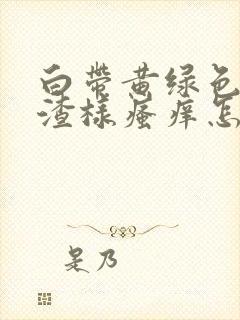 白带黄绿色
渣样瘙痒怎
是乃